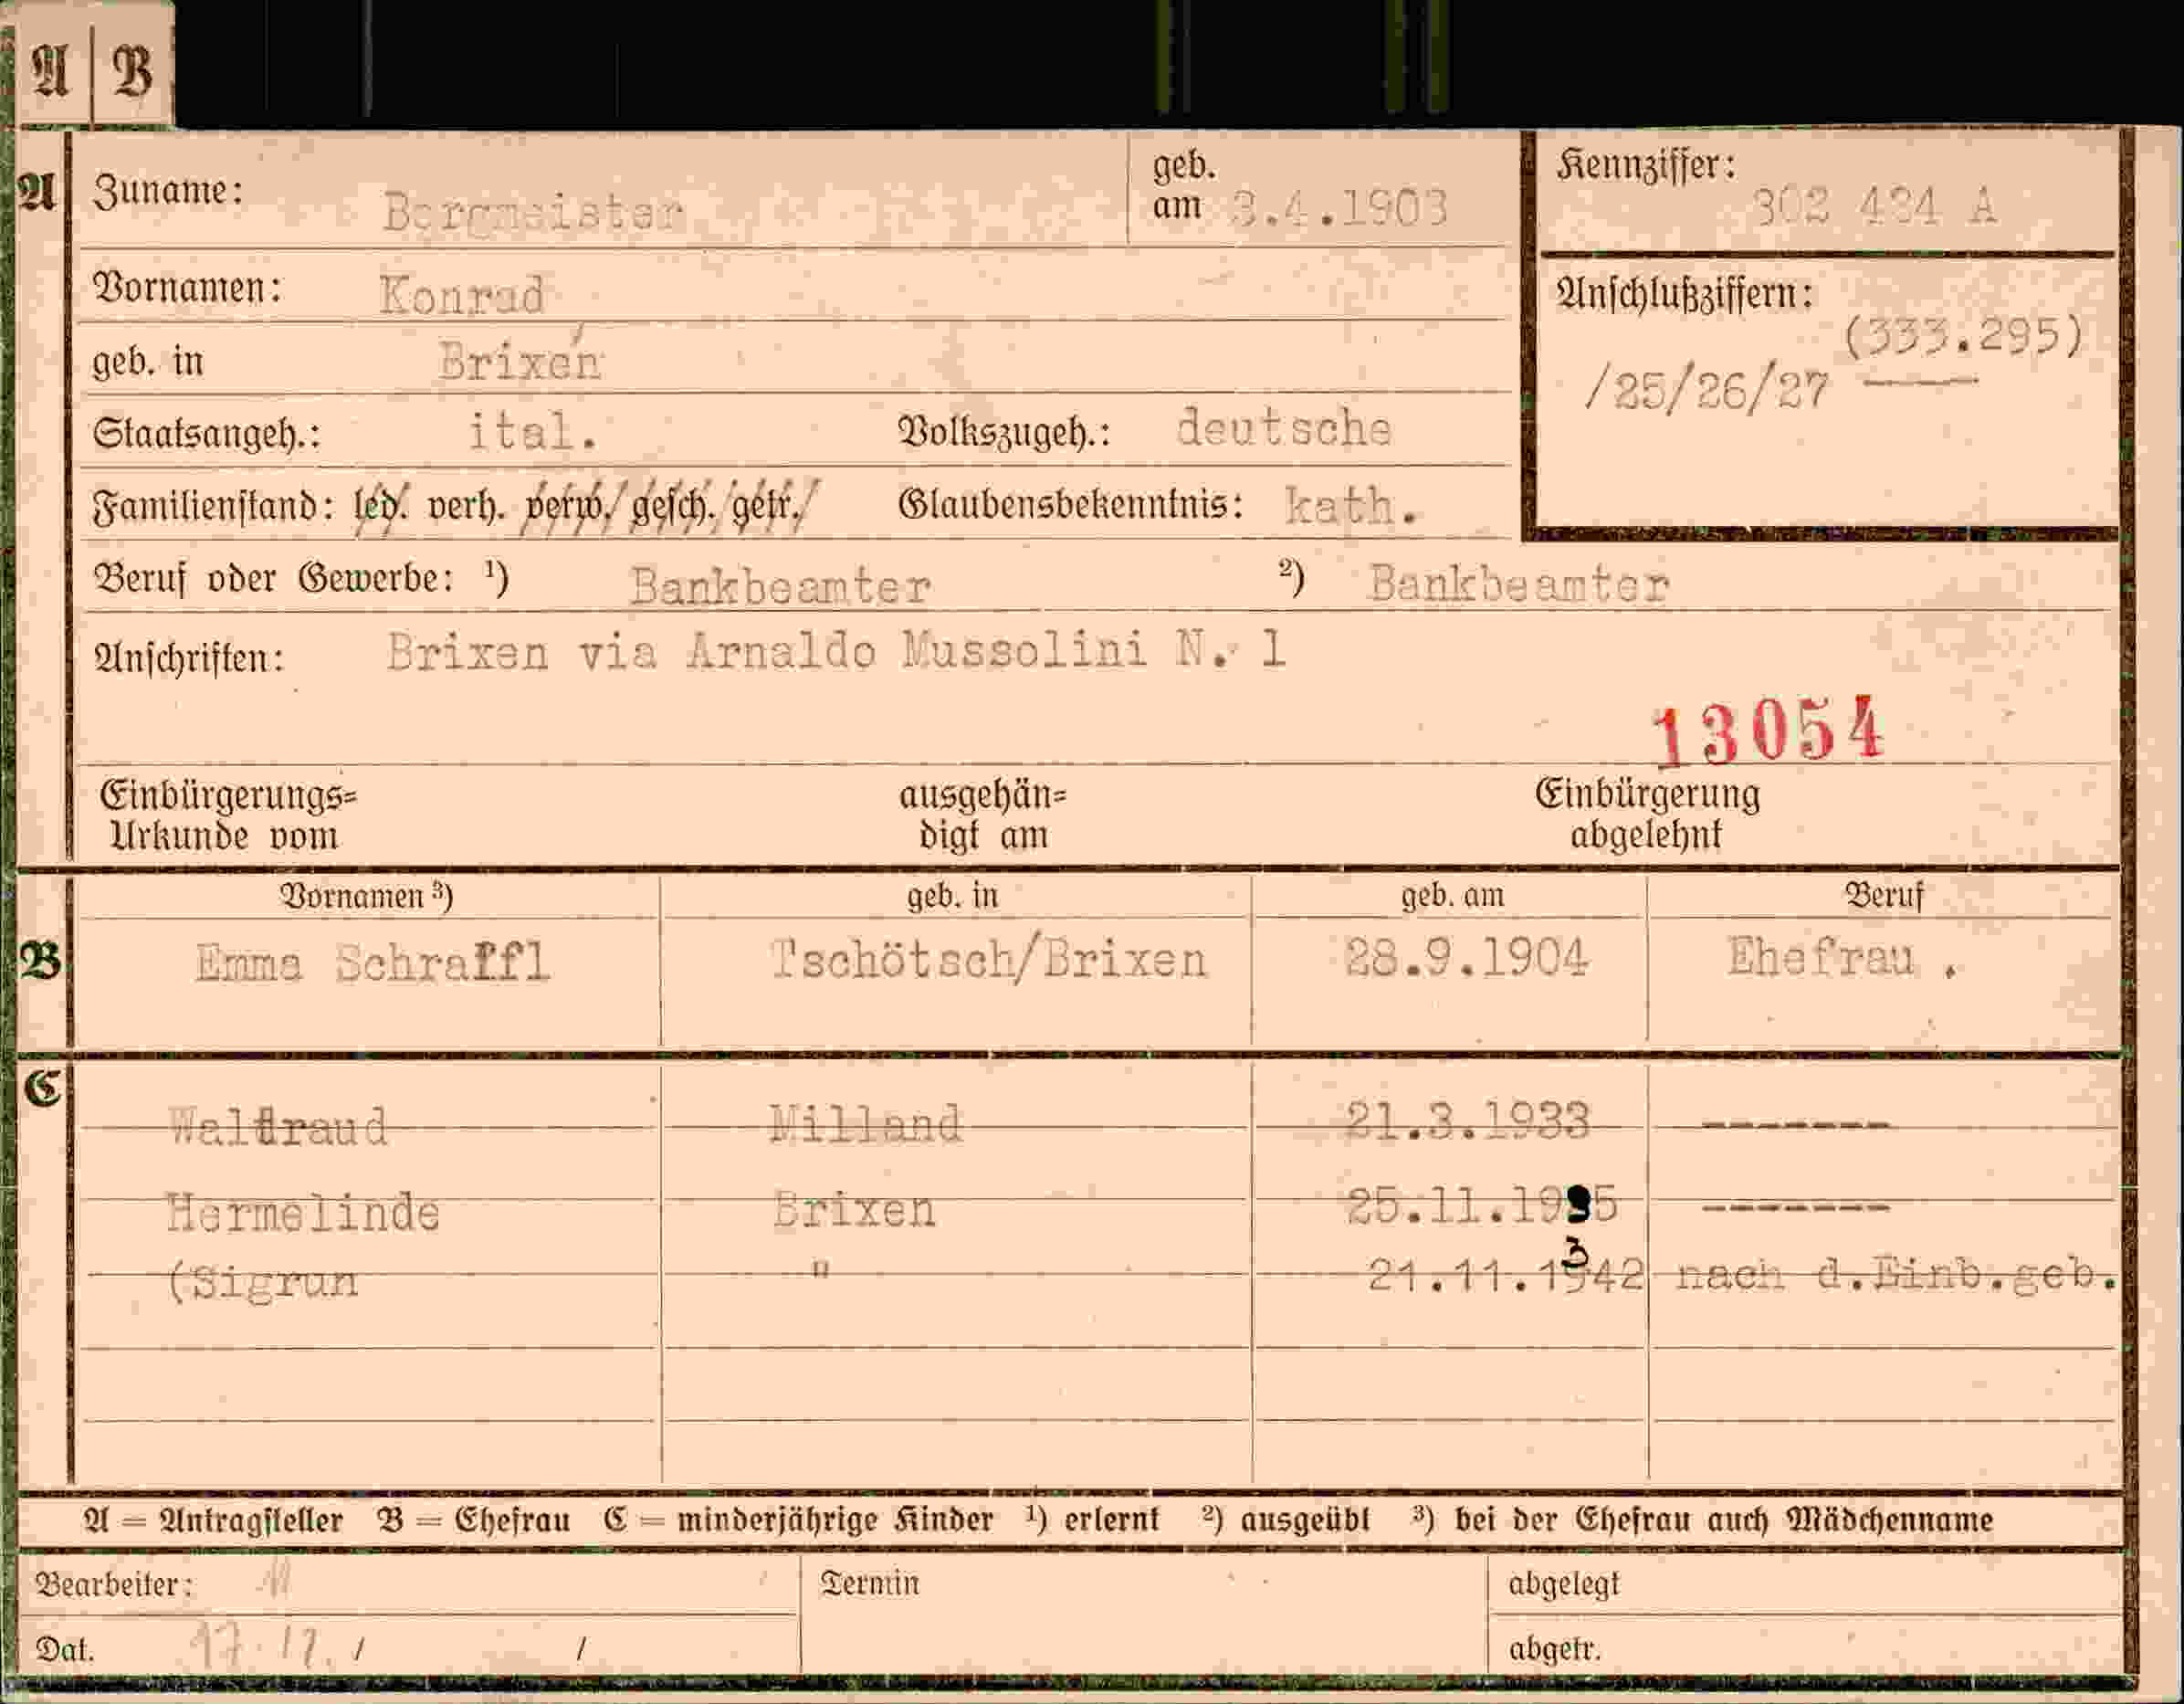 A | B
A Zuname: Bergmeister geb. am 3.4.1903 Kennziffer: 302 424 A
Vornamen: Konrad Anschlußziffern: (333.295)
geb. in Brixen /25/26/27
Staatsangeh.: ital. Volkszugeh.: deutsche
Familienstand: led. verh. verw. gesch. getr. Glaubensbekenntnis: kath.
Beruf oder Gewerbe: ¹) Bankbeamter ²) Bankbeamter
Anschriften: Brixen via Arnaldo Mussolini N. 1
13054
Einbürgerungs= ausgehän= Einbürgerung
Urkunde vom digt am abgelehnt
Vornamen ³) geb. in geb. am Beruf
B Emma Schraffl Tschötsch/Brixen 28.9.1904 Ehefrau .
C
Waltraud Milland 21.3.1933 -------
Hermelinde Brixen 25.11.1935 -------
3
(Sigrun " 21.11.1942 nach d.Einb.geb.
A = Antragsteller B = Ehefrau C = minderjährige Kinder ¹) erlernt ²) ausgeübt ³) bei der Ehefrau auch Mädchenname
Bearbeiter: Termin abgelegt
Dat. 17. 12. / / abgetr.